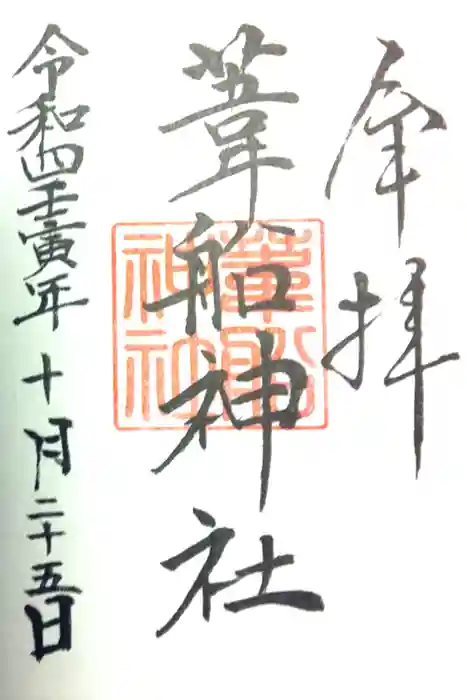 奉拝
葦船神社
令和四壬寅年十月二十五日
葦船
神社